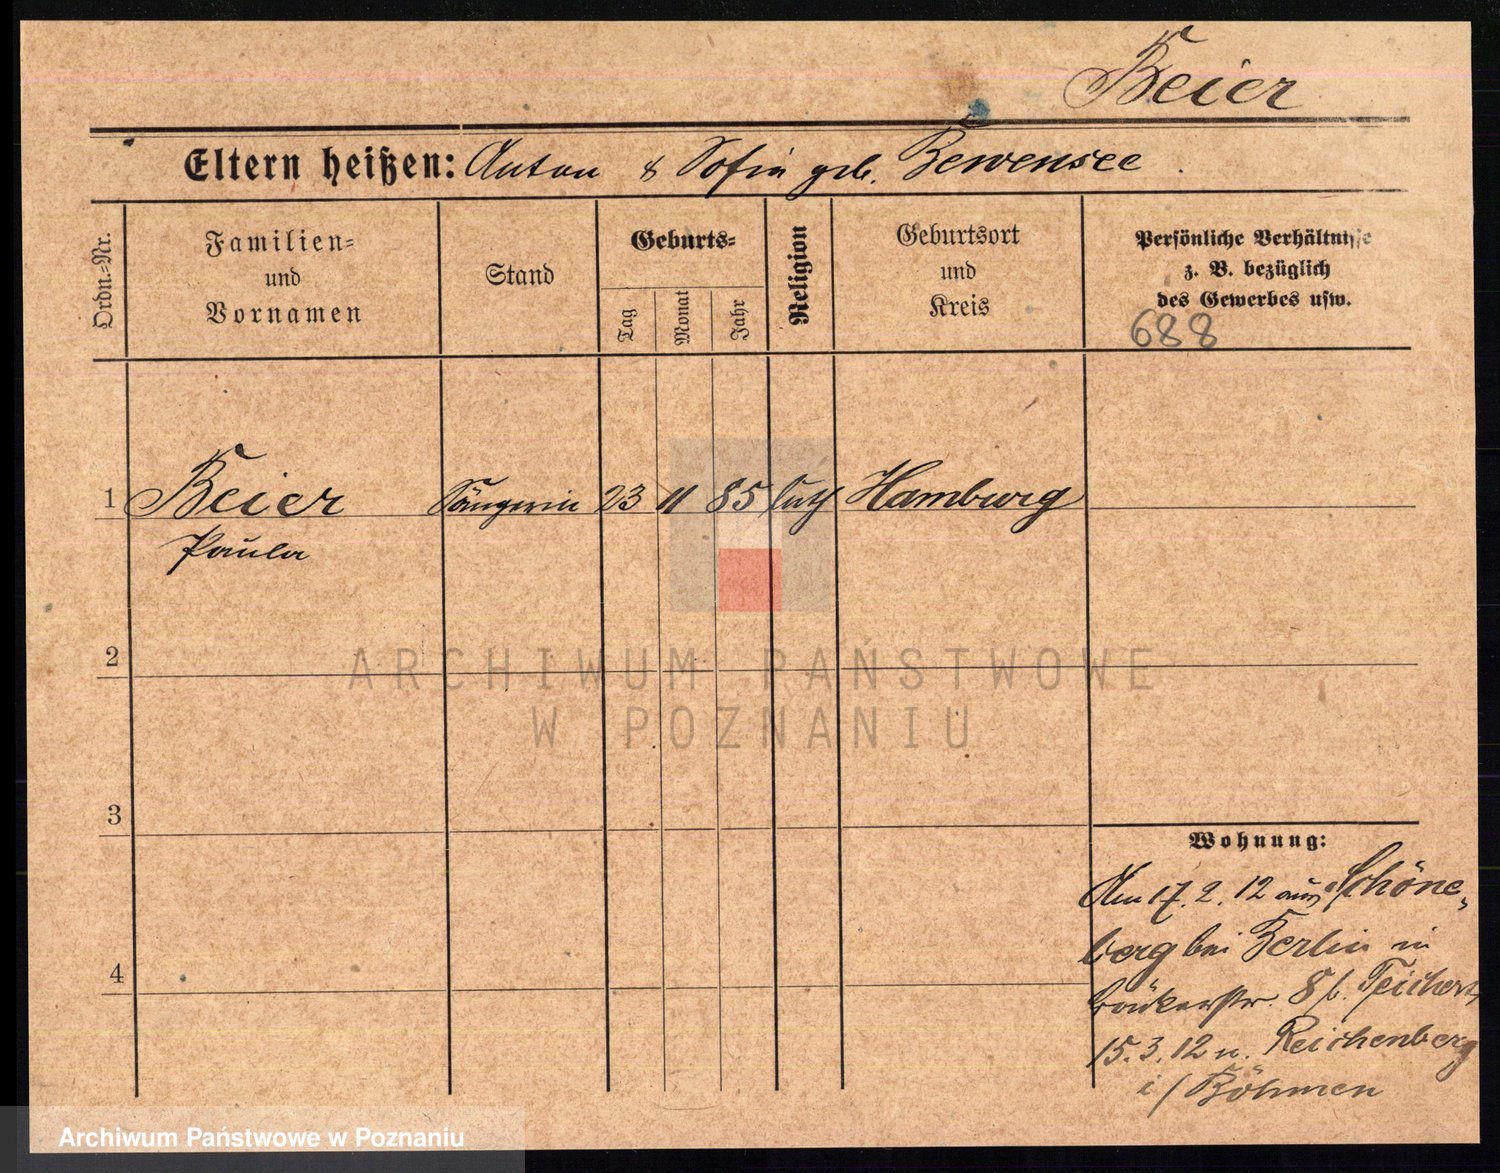 Beier
Eltern heißen: Anton & Sofia geb. Bewensee.
Ordn.-Nr.
Familien-
und
Vornamen
Stand
Geburts-
Tag
Monat
Jahr
Religion
Geburtsort
und
Kreis
Persönliche Verhältnisse
z. B. bezüglich
des Gewerbes usw.
688
1 Beier Sängerin 23 11 85 luth Hamburg
Paula
2
ARCHIWUM PAŃSTWOWE
W POZNANIU
3
Wohnung:
Am 17.2.12 aus Schöne-
berg bei Berlin in
8 b. Teichert
4
15.3.12 n. Reichenberg
i/Böhmen
Archiwum Państwowe w Poznaniu